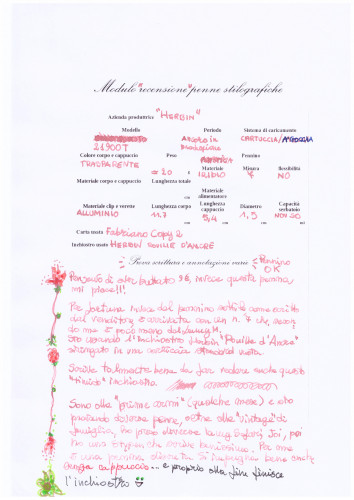 Modulo "recensione" penne stilografiche
Azienda produttrice "HERBIN"
Modello Periodo Sistema di caricamento
21900T Ancora in produzione CARTUCCIA/
Colore corpo e cappuccio Peso Materiale Pennino Misura flessibilità
TRASPARENTE ≈ 20 g IRIDIO F NO
Materiale corpo e cappuccio Lunghezza totale Materiale alimentatore
cm
Materiale clip e verette Lunghezza corpo Lunghezza cappuccio Diametro Capacità serbatoio
ALLUMINIO 11.7 5,4 1,5 NON SO
cm cm cm ml
Carta usata Fabriano Copy 2
Inchiostro usato HERBIN ROUILLE D'ANCRE
Prova scrittura e annotazioni varie Pennino OK
Pensavo di aver buttato 9€, invece questa penna
mi piace!!!
Per fortuna nulla del pennino sottile come scritto
dal venditore, è arrivata con un M che secon
do me è poco meno del Lamy M.
Sto usando l'inchiostro Herbin "Rouille d'Ancre"
siringato in una cartuccia standard vuota.
Scrive talmente bene da far vedere anche questo
"timido" inchiostro
Sono alle "prime armi" (qualche mese) e sto
provando diverse penne, oltre alle "vintage" di
famiglia, ho preso diverse Lamy Safari, Joi, poi
ho una che scrive benissimo. Per me
è una piccola Si impugna bene anche
senza cappuccio... e proprio alla fine finisce
l'inchiostro